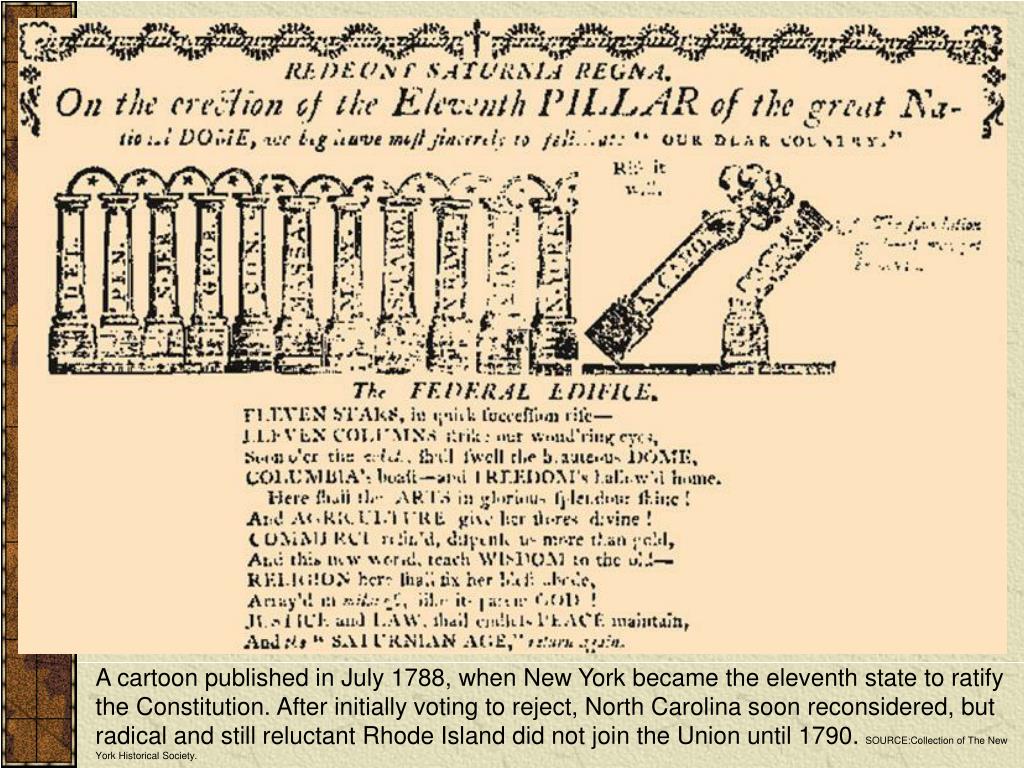 REDEUNT SATURNIA REGNA.
On the erection of the Eleventh PILLAR of the great Na-
tional DOME, we beg leave most sincerely to felicitate " OUR DEAR COUNTRY."
Rise it
will.
The foundation
good
DEL.
PEN.
N.JER
GEOR.
CON.
MASSA.
MARY.
S.CARO.
N.HAMP.
N.YORK.
N. CAROL.
The FEDERAL EDIFICE.
ELEVEN STARS, in quick succession rise—
ELEVEN COLUMNS strike our wond'ring eyes,
Soon o'er the whole, shall swell the beauteous DOME,
COLUMBIA's boast—and FREEDOM's hallow'd home.
Here shall the ARTS in glorious splendour shine!
And AGRICULTURE give her stores divine!
COMMERCE refin'd, dispense us more than gold,
And this new world, teach WISDOM to the old—
RELIGION here shall fix her blest abode,
Array'd in mildness, like its parent GOD!
JUSTICE and LAW, shall endless PEACE maintain,
And the " SATURNIAN AGE," return again.
A cartoon published in July 1788, when New York became the eleventh state to ratify
the Constitution. After initially voting to reject, North Carolina soon reconsidered, but
radical and still reluctant Rhode Island did not join the Union until 1790. SOURCE:Collection of The New
York Historical Society.